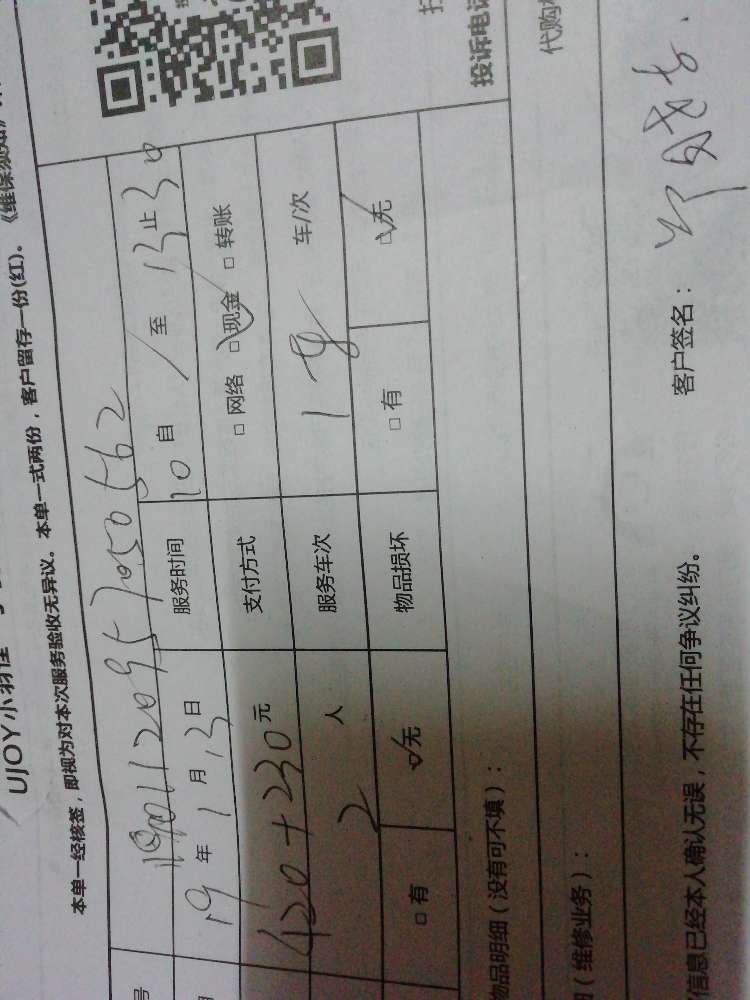 UJOY小羽佳
《维保须知》
本单一经核签，即视为对本次服务验收无异议。本单一式两份，客户留存一份(红)。
号 1901120957050562
19年1月13日 服务时间 10 自 / 至 13止30
420+230元 支付方式 □网络 ☑现金 □转账
2人 服务车次 1 车/次
□有 ☑无 物品损坏 □有 ☑无
物品明细（没有可不填）： 投诉电话
（维修业务）： 代购
信息已经本人确认无误，不存在任何争议纠纷。 客户签名：